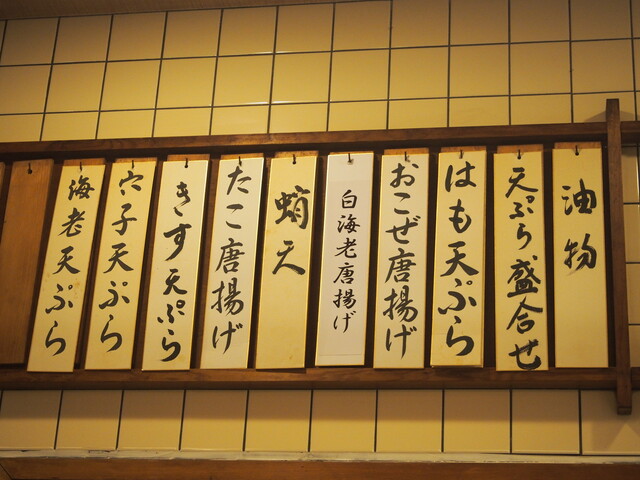 油物
天ぷら盛合せ
はも天ぷら
おこぜ唐揚げ
白海老唐揚げ
蛸天
たこ唐揚げ
きす天ぷら
穴子天ぷら
海老天ぷら